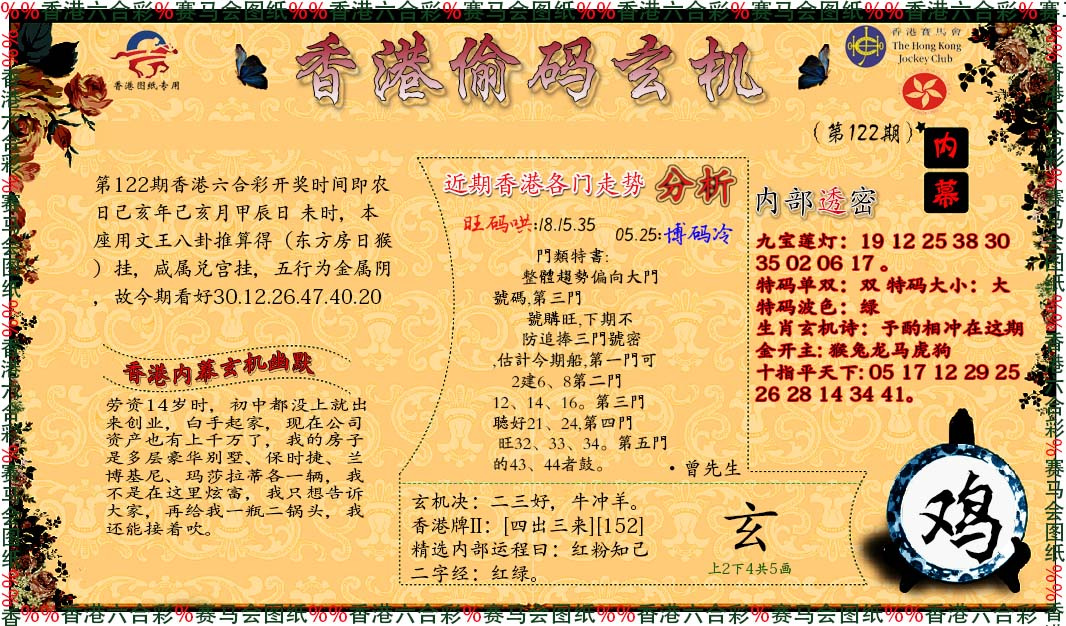 %%香港六合彩%赛马会图纸%%香港六合彩%赛马会图纸%%香港六合彩%赛马会图纸%%香港六合彩%赛马
香港图纸专用
香港偷码玄机
香港賽馬會
The Hong Kong
Jockey Club
(第122期)
内
幕
第122期香港六合彩开奖时间即农
日己亥年己亥月甲辰日 未时，本
座用文王八卦推算得（东方房日猴
）挂，咸属兑宫挂，五行为金属阴
，故今期看好30.12.26.47.40.20
香港内幕玄机幽默
劳资14岁时，初中都没上就出
来创业，白手起家，现在公司
资产也有上千万了，我的房子
是多层豪华别墅、保时捷、兰
博基尼、玛莎拉蒂各一辆，我
不是在这里炫富，我只想告诉
大家，再给我一瓶二锅头，我
还能接着吹。
近期香港各门走势 分析
旺码哄:18.15.35
05.25:博码冷
門類特書:
整體趨勢偏向大門
號碼,第三門
號購旺,下期不
防追捧三門號密
,估計今期船,第一門可
2建6、8第二門
12、14、16。第三門
聽好21、24,第四門
旺32、33、34。第五門
的43、44者鼓。
·曾先生
内部透密
九宝莲灯：19 12 25 38 30
35 02 06 17 。
特码单双：双 特码大小：大
特码波色：绿
生肖玄机诗：予酌相冲在这期
金开主: 猴兔龙马虎狗
十指平天下: 05 17 12 29 25
26 28 14 34 41。
玄机决：二三好，牛冲羊。
香港牌II：[四出三来][152]
精选内部运程曰：红粉知己
二字经：红绿。
玄
上2下4共5画
鸡
香%%香港六合彩%赛马会图纸%%香港六合彩%赛马会图纸%%香港六合彩%赛马会图纸%%香港六合彩%